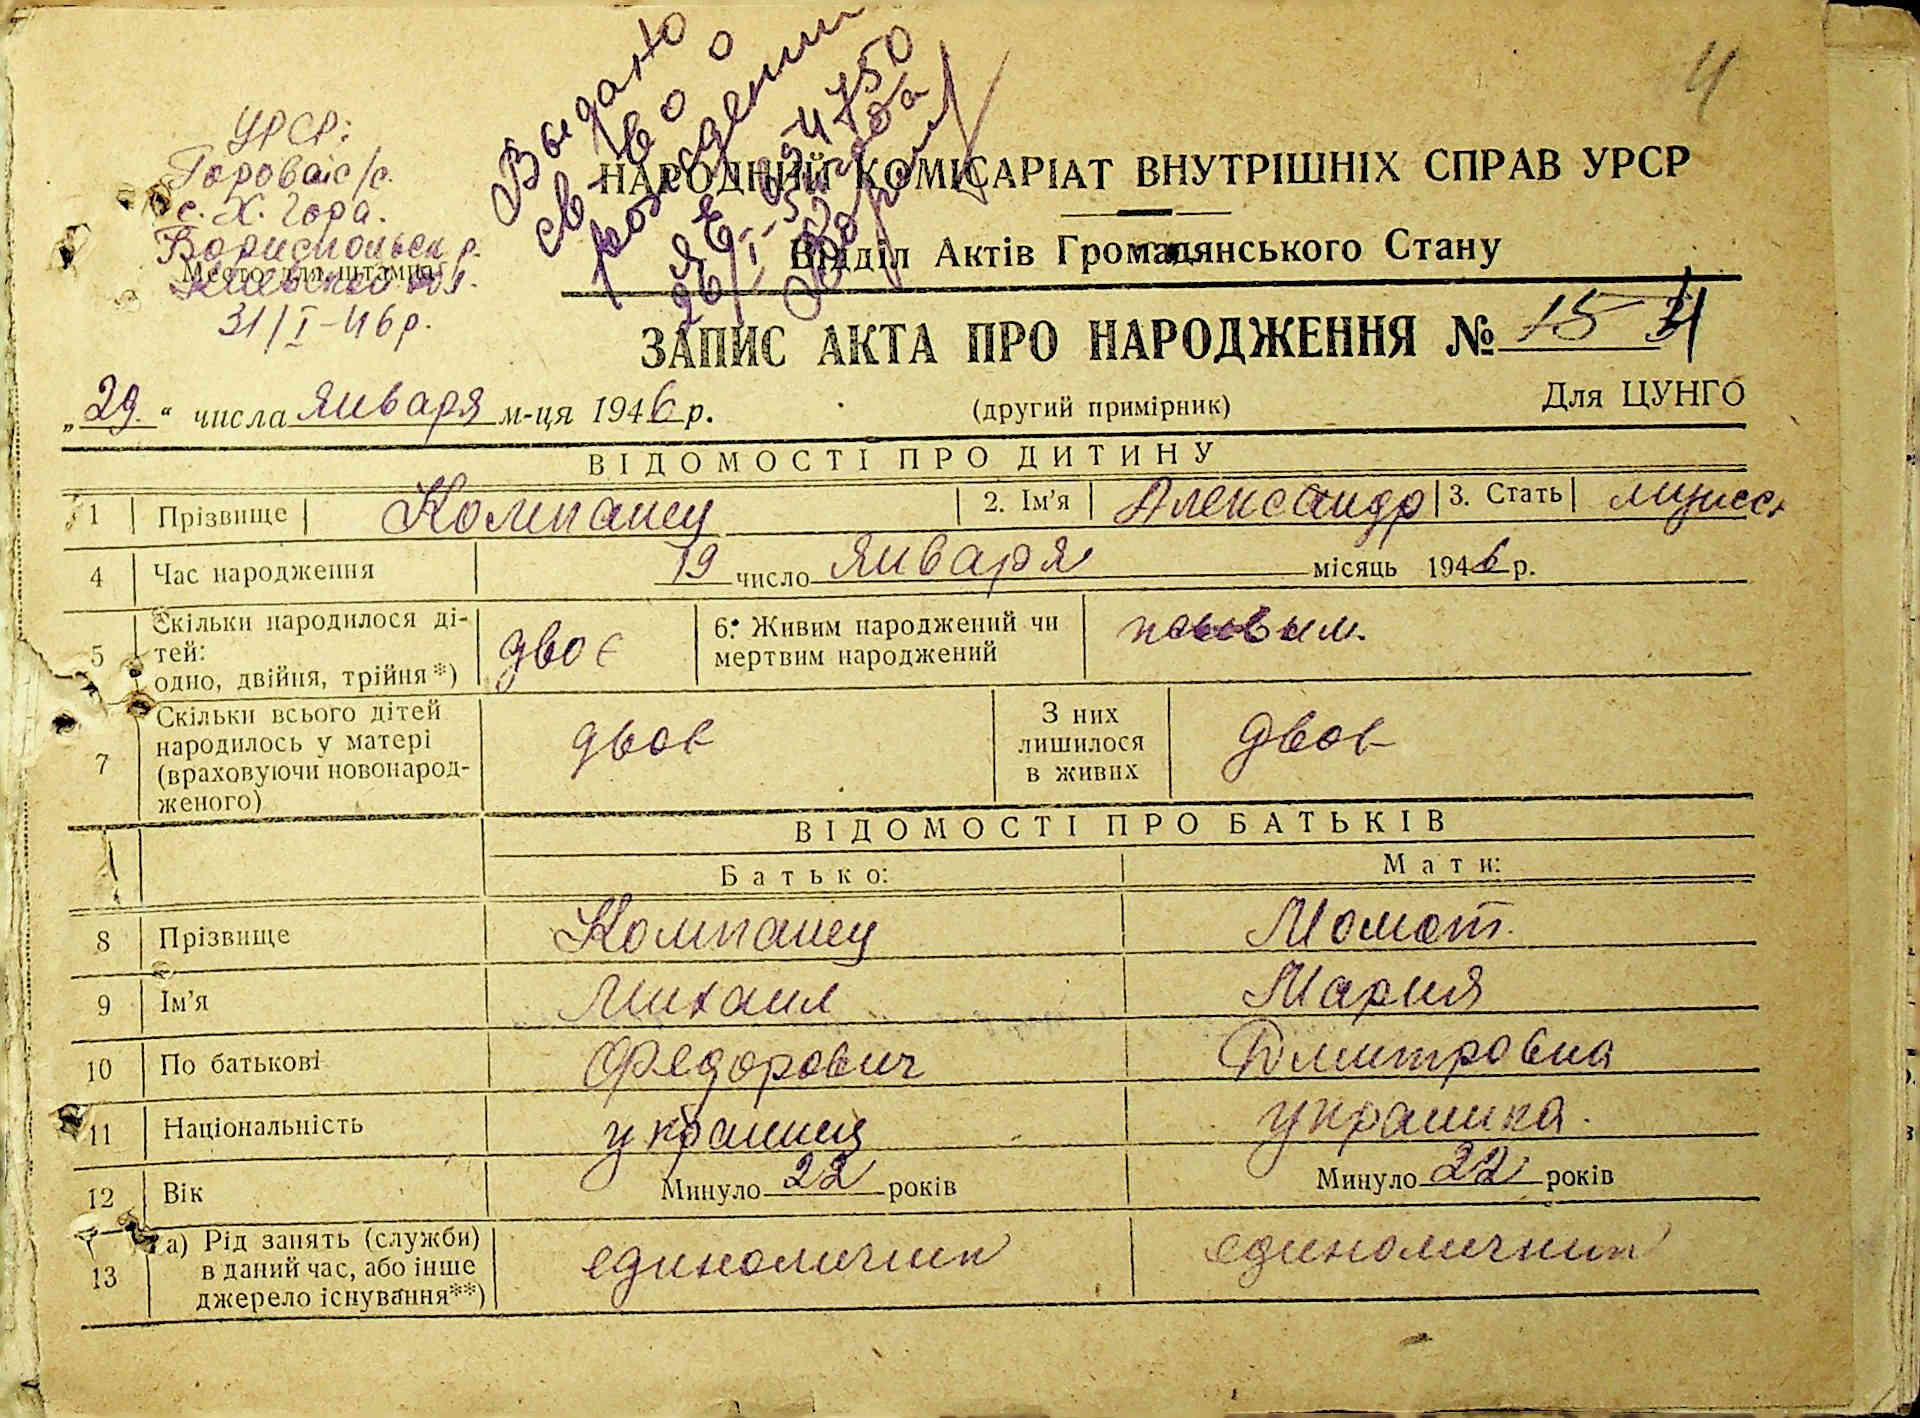 4
Выдано
св-во о
рождении
УРСР:
Горовс. с/с.
с. Х. Гора.
Бориспольск р.
Место для штампа
31/I-46 р.
НАРОДНИЙ КОМІСАРІАТ ВНУТРІШНІХ СПРАВ УРСР
Відділ Актів Громадянського Стану
ЗАПИС АКТА ПРО НАРОДЖЕННЯ № 15
„29.“ числа января м-ця 1946 р. (другий примірник) Для ЦУНГО
ВІДОМОСТІ ПРО ДИТИНУ
1 Прізвище Компанец 2. Ім'я Александр 3. Стать мужск
4 Час народження 19 число января місяць 1946 р.
5 Скільки народилося ді-
тей:
одно, двійня, трійня*) двоє 6. Живим народжений чи
мертвим народжений
7 Скільки всього дітей
народилось у матері
(враховуючи новонарод-
женого) двоє З них
лишилося
в живих двоє
ВІДОМОСТІ ПРО БАТЬКІВ
Батько: Мати:
8 Прізвище Компанец Момот.
9 Ім'я Михаил Мария
10 По батькові Федорович Дмитровна
11 Національність украинец украинка.
12 Вік Минуло 22 років Минуло 22 років
13 а) Рід занять (служби)
в даний час, або інше
джерело існування**) единоличник единоличник